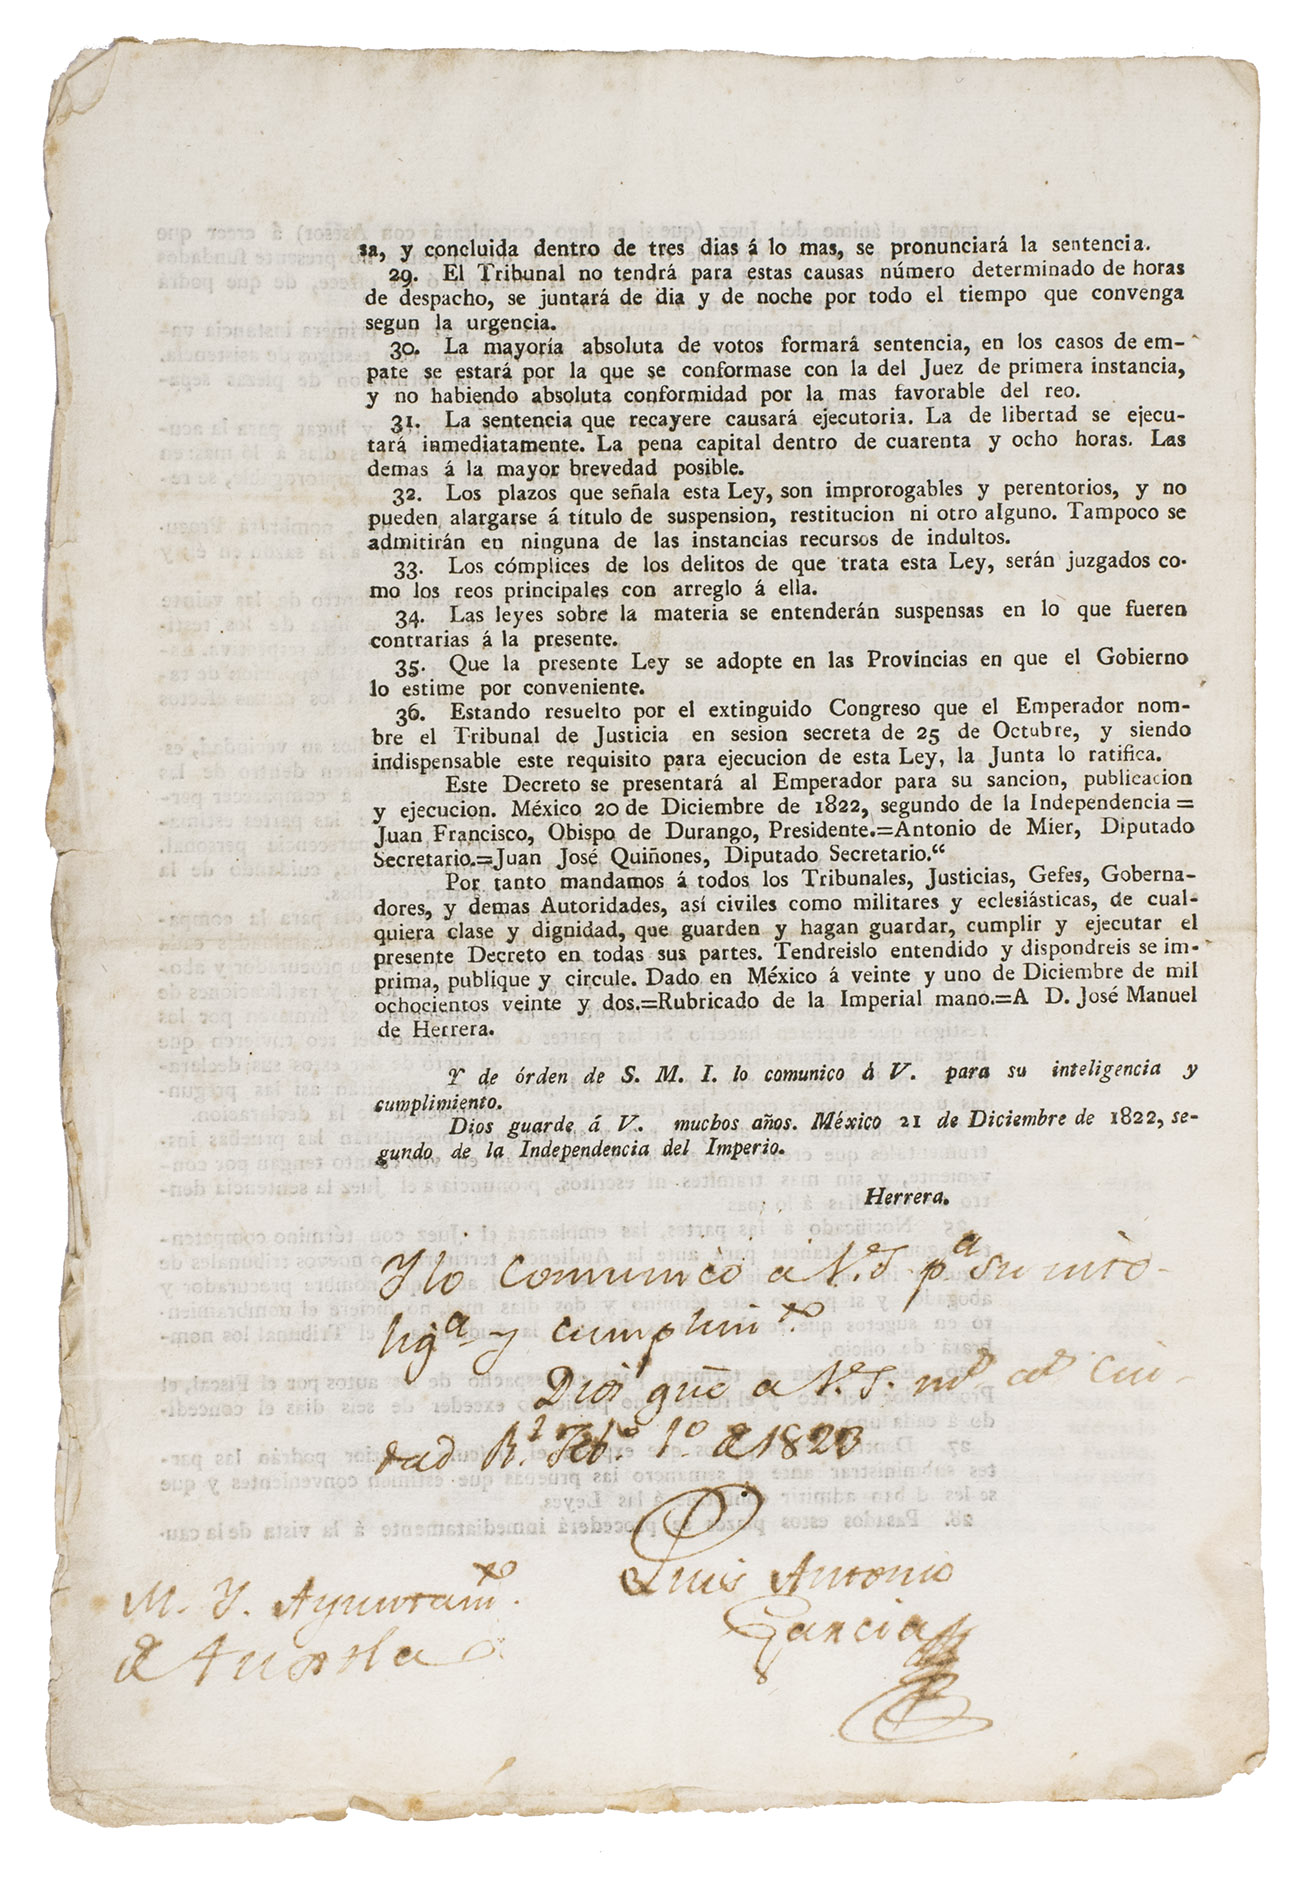 sa, y concluida dentro de tres dias á lo mas, se pronunciará la sentencia.
29. El Tribunal no tendrá para estas causas número determinado de horas
de despacho, se juntará de dia y de noche por todo el tiempo que convenga
segun la urgencia.
30. La mayoría absoluta de votos formará sentencia, en los casos de em-
pate se estará por la que se conformase con la del Juez de primera instancia,
y no habiendo absoluta conformidad por la mas favorable del reo.
31. La sentencia que recayere causará ejecutoria. La de libertad se ejecu-
tará inmediatamente. La pena capital dentro de cuarenta y ocho horas. Las
demas á la mayor brevedad posible.
32. Los plazos que señala esta Ley, son improrogables y perentorios, y no
pueden alargarse á título de suspension, restitucion ni otro alguno. Tampoco se
admitirán en ninguna de las instancias recursos de indultos.
33. Los cómplices de los delitos de que trata esta Ley, serán juzgados co-
mo los reos principales con arreglo á ella.
34. Las leyes sobre la materia se entenderán suspensas en lo que fueren
contrarias á la presente.
35. Que la presente Ley se adopte en las Provincias en que el Gobierno
lo estime por conveniente.
36. Estando resuelto por el extinguido Congreso que el Emperador nom-
bre el Tribunal de Justicia en sesion secreta de 25 de Octubre, y siendo
indispensable este requisito para ejecucion de esta Ley, la Junta lo ratifica.
Este Decreto se presentará al Emperador para su sancion, publicacion
y ejecucion. México 20 de Diciembre de 1822, segundo de la Independencia=
Juan Francisco, Obispo de Durango, Presidente.=Antonio de Mier, Diputado
Secretario.=Juan José Quiñones, Diputado Secretario.“
Por tanto mandamos á todos los Tribunales, Justicias, Gefes, Goberna-
dores, y demas Autoridades, así civiles como militares y eclesiásticas, de cual-
quiera clase y dignidad, que guarden y hagan guardar, cumplir y ejecutar el
presente Decreto en todas sus partes. Tendreislo entendido y dispondreis se im-
prima, publique y circule. Dado en México á veinte y uno de Diciembre de mil
ochocientos veinte y dos.=Rubricado de la Imperial mano.=A D. José Manuel
de Herrera.
Y de órden de S. M. I. lo comunico á V. para su inteligencia y
cumplimiento.
Dios guarde á V. muchos años. México 21 de Diciembre de 1822, se-
gundo de la Independencia del Imperio.
Herrera.
Y lo comunico a V.S. pª su inte-
ligª y cumplimto.
Dios gue a V.S. ms as Ciu-
dad Rl Febo 1º de 1823
Luis Antonio
Garcia
M. Y. Ayuntamto.
de